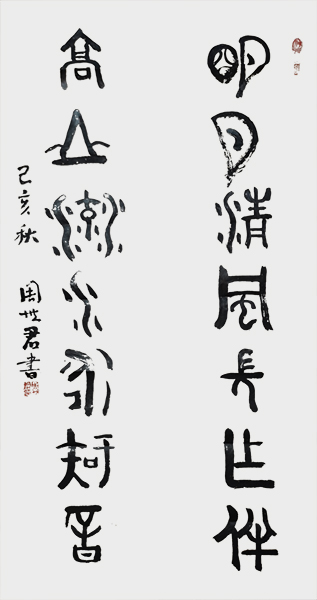 明月清風長作伴
高山流水永知音
己亥秋 周世君書